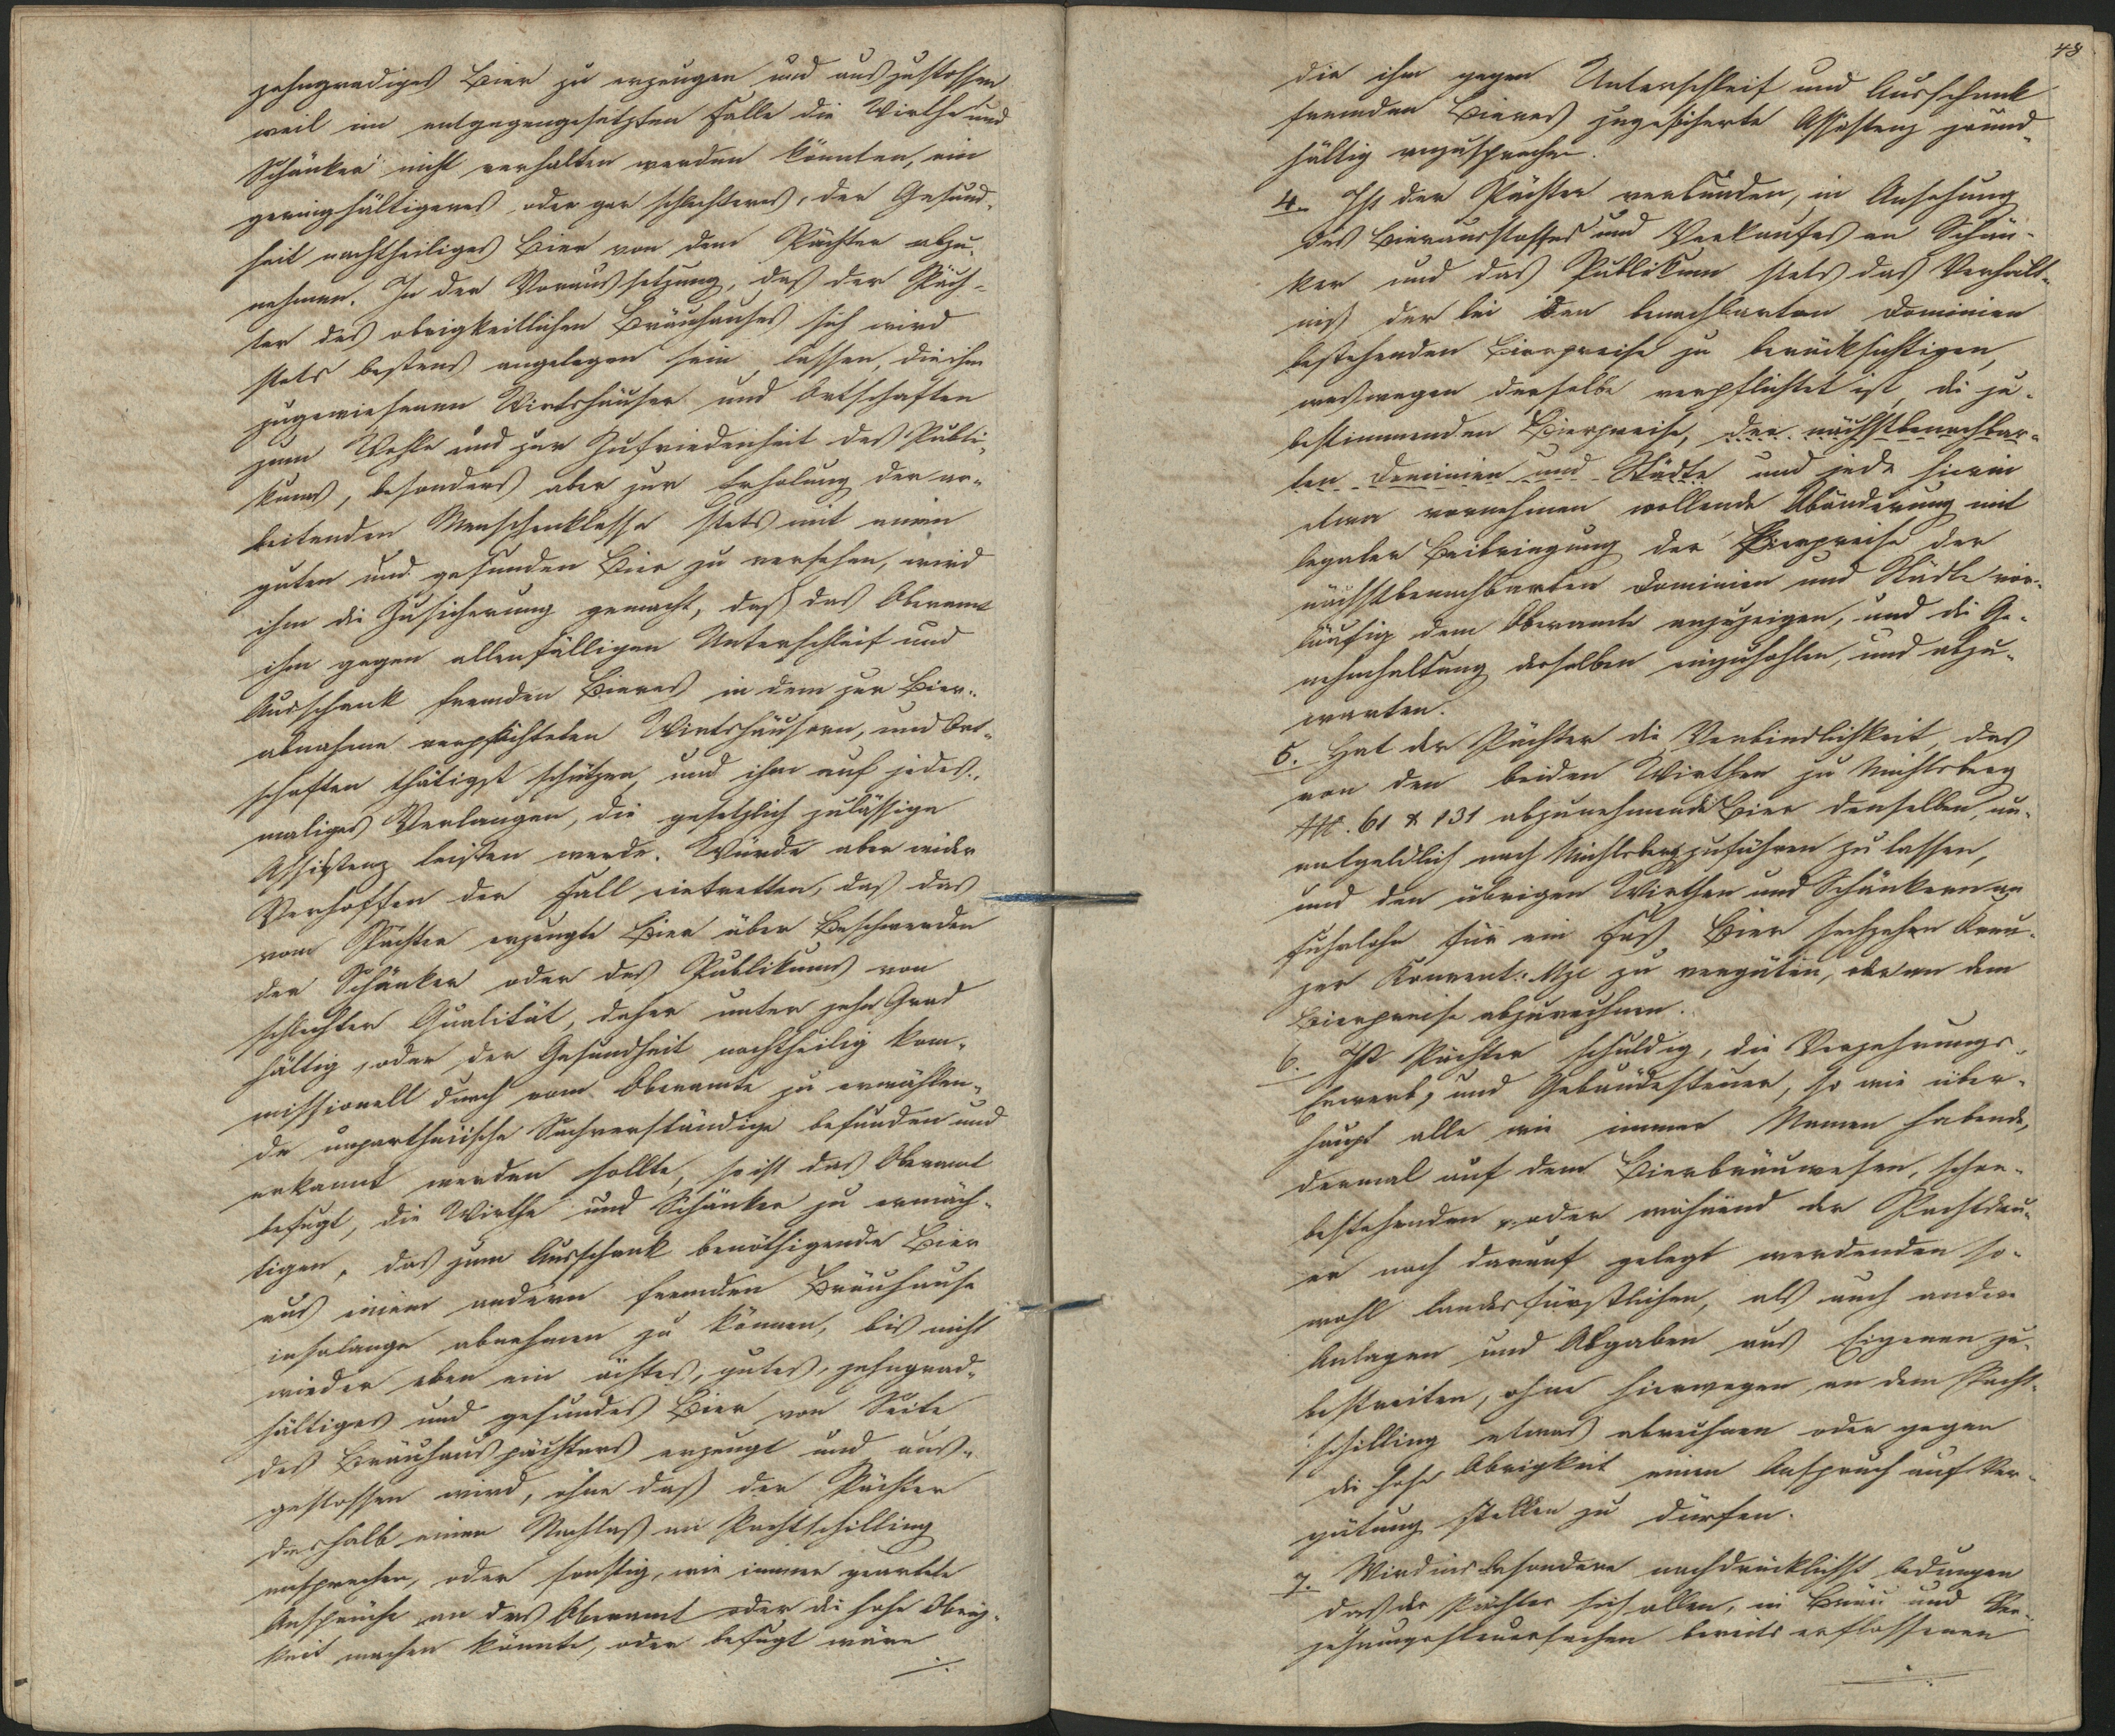 zehngradiges Bier zu erzeugen und auszustossen
weil im entgegengesetzten Falle die Wirthe und
Schänker nicht verhalten werden könnten, ein
geringhältigeres, oder gar schlechteres, der Gesund-
heit nachtheiliges Bier von dem Pächter abzu-
nehmen. In der Voraussetzung, daß der Päch-
ter des obrigkeitlichen Bräuhauses sich wird
stets bestens angelegen sein lassen, die ihm
zugewiesenen Wirtshäuser und Ortschaften
zum Wohle und zur Zufriedenheit des Publi-
kums, besonders aber zur Erholung der ar-
beitenden Menschenklasse stets mit einem
guten und gesunden Bier zu versehen, wird
ihm die Zusicherung gemacht, daß das Oberamt
ihm gegen allenfälligen Unterschleif und
Ausschank fremden Bieres in dem zur Bier-
abnahme verpflichteten Wirtshäusern, und Ort-
schaften thätigst schützen und ihm auf jedes-
maliges Verlangen, die gesetzlich zulässige
Assistenz leisten werde. Würde aber wider
Verhoffen der Fall eintretten, daß das
vom Pächter erzeugte Bier über Beschwerden
der Schänker oder des Publikums von
schlechter Qualität, daher unter zehn Grad
hältig, oder der Gesundheit nachtheilig kom-
missionell durch vom Oberamte zu erwählen-
de unpartheiische Sachverständige befunden und
erkannt werden sollte, so ist das Oberamt
befugt, die Wirthe und Schänker zu ermäch-
tigen, das zum Ausschank benöthigende Bier
aus einem andern fremden Bräuhause
insolange abnehmen zu können, bis nicht
wieder eben ein ächtes, gutes, zehngrad-
hältiges und gesundes Bier von Seite
des Bräuhauspächters erzeugt und aus-
gestossen wird, ohne daß der Pächter
deshalb einen Nachlaß am Pachtschilling
ansprechen, oder sonstig, wie immer geartete
Ansprüche an das Oberamt oder die hohe Obrig-
keit machen könnte, oder befugt wäre
48
die ihm gegen Unterschleif und Ausschank
fremden Bieres zugesicherte Assistenz grund-
hältig anzusprechen.
4. Ist der Pächter verbunden, in Ansehung
des Bierausstosses und Verkaufes an Schän-
ker und das Publikum stets das Verhält-
niß der bei den benachbarten Dominien
bestehenden Bierpreise zu berücksichtigen,
weßwegen derselbe verpflichtet ist, die zu
bestimmenden Bierpreise, der nächstbenachbar-
ten Dominien und Städte und jede hierin
etwa vornehmen wollende Abänderung mit
legaler Beibringung der Bierpreise der
nächstbenachbarten Dominien und Städte vor-
läufig dem Oberamte anzuzeigen, und die Ge-
nehmhaltung desselben einzuhohlen, und abzu-
warten.
5. Hat der Pächter die Verbindlichkeit, das
von den beiden Wirthen zu Nichtsberg
61 & 131 abzunehmende Bier denselben un-
entgeldlich nach Nichtsberg zuführen zu lassen,
und den übrigen Wirthen und Schänkern an
Fuhrlohn für ein Faß Bier sechzehn Kreu-
zer Konvent: Mze zu vergüten, oder an dem
Bierpreise abzurechnen.
6. Ist Pächter schuldig, die Verzehrungs-
Erwerb, und Gebäudesteuer, so wie über-
haupt alle wie immer Namen habende,
dermal auf dem Bierbräuwesen, schon
bestehenden, oder während der Pachtdau-
er noch darauf gelegt werdenden so-
wohl landesfürstlichen, als auch andere
Anlagen und Abgaben aus Eigenem zu
bestreiten, ohne hierwegen an dem Pacht-
schilling etwas abrechnen oder gegen
die hohe Obrigkeit einen Anspruch auf Ver-
gütung stellen zu dürfen.
7. Wird insbesondere nachdrücklichst bedungen
daß der Pächter sich allen, in Bräu und Ver-
zehrungssteuersachen bereits erflossenen